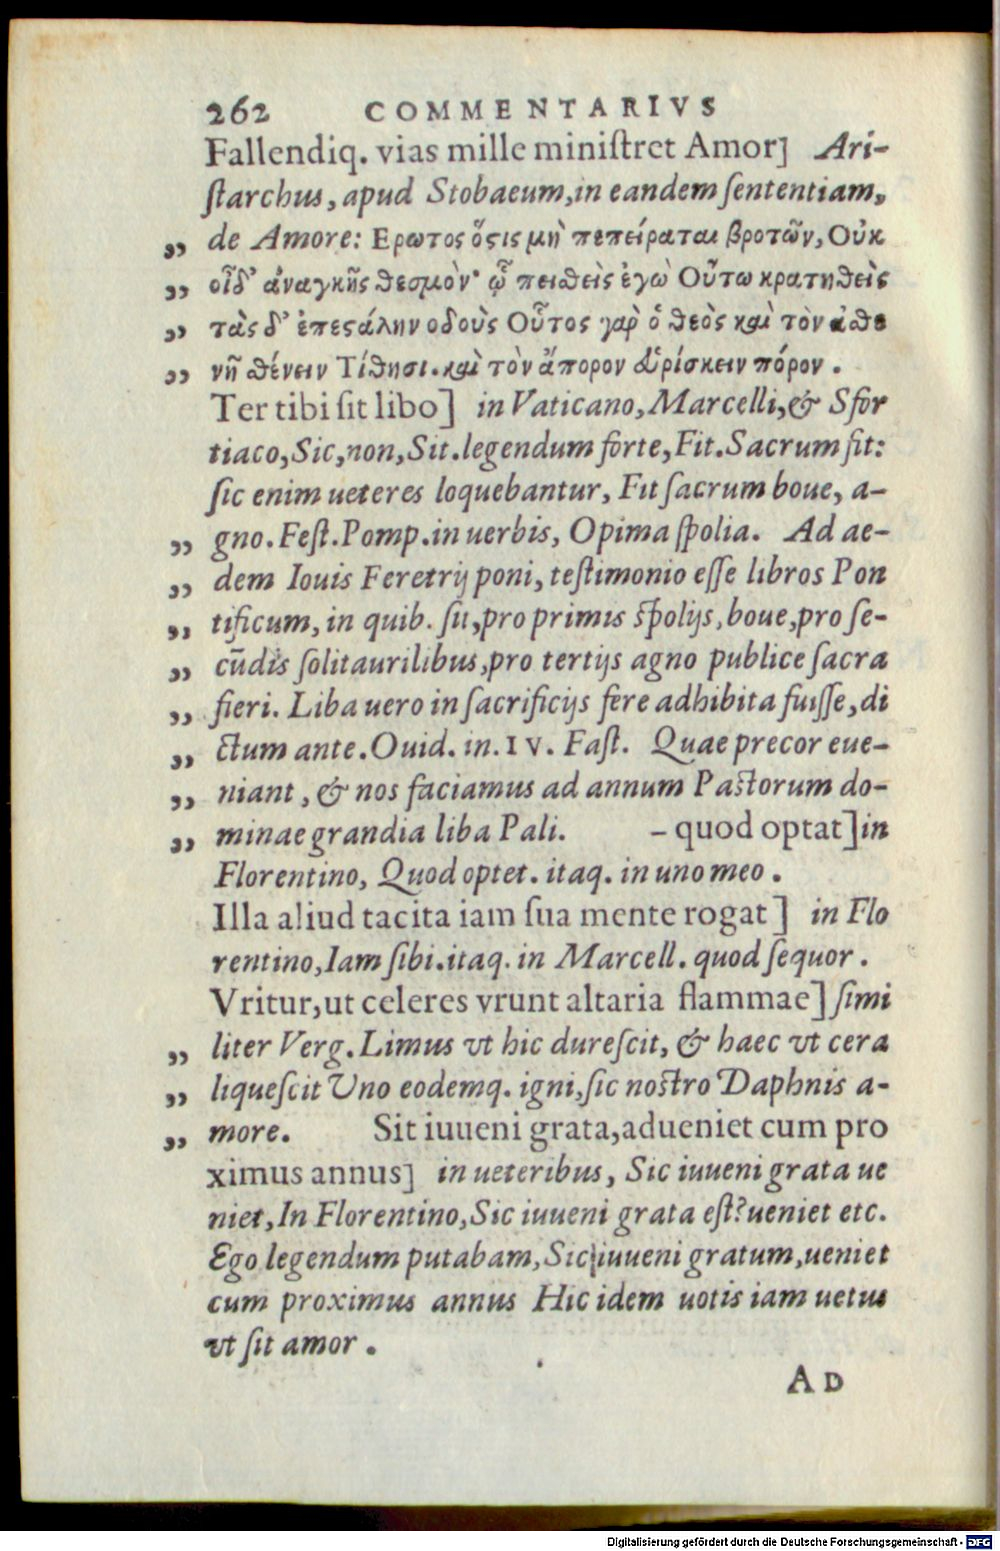 262 COMMENTARIVS
Fallendiq. vias mille miniſtret Amor] Ari-
ſtarchus, apud Stobaeum, in eandem ſententiam,
„ de Amore: Ερωτος ὅϛις μὴ πεπείραται βροτῶν, Οὐκ
„ οἶδ' ἀναγκῆς θεσμὸν· ᾧ πειθεὶς ἐγὼ Οὕτω κρατηθεὶς
„ τὰς δ' ἐπεϛάλην οδοὺς Οὗτος γὰρ ὁ θεὸς καὶ τὸν ἀθε
„ νῆ θένειν Τίθησι. καὶ τὸν ἄπορον εὑρίσκειν πόρον.
Ter tibi ſit libo] in Vaticano, Marcelli, & Sfor
tiaco, Sic, non, Sit. legendum forte, Fit. Sacrum fit:
ſic enim ueteres loquebantur, Fit ſacrum boue, a-
„ gno. Feſt. Pomp. in uerbis, Opima ſpolia. Ad ae-
„ dem Iouis Feretrij poni, teſtimonio eſſe libros Pon
„ tificum, in quib. ſit, pro primis ſpolijs, boue, pro ſe-
„ cūdis ſolitaurilibus, pro tertijs agno publice ſacra
„ fieri. Liba uero in ſacrificijs fere adhibita fuiſſe, di
„ ctum ante. Ouid. in. IV. Faſt. Quae precor eue-
„ niant, & nos faciamus ad annum Paſtorum do-
„ minae grandia liba Pali. – quod optat] in
Florentino, Quod optet. itaq. in uno meo.
Illa aliud tacita iam ſua mente rogat] in Flo
rentino, Iam ſibi. itaq. in Marcell. quod ſequor.
Vritur, ut celeres vrunt altaria flammae] ſimi
„ liter Verg. Limus vt hic dureſcit, & haec vt cera
„ liqueſcit Uno eodemq. igni, ſic noſtro Daphnis a-
„ more. Sit iuueni grata, adueniet cum pro
ximus annus] in ueteribus, Sic iuueni grata ue
niet, In Florentino, Sic iuueni grata eſt? ueniet etc.
Ego legendum putabam, Sic iuueni gratum, ueniet
cum proximus annus Hic idem uotis iam uetus
vt ſit amor.
AD
Digitalisierung gefördert durch die Deutsche Forschungsgemeinschaft - DFG